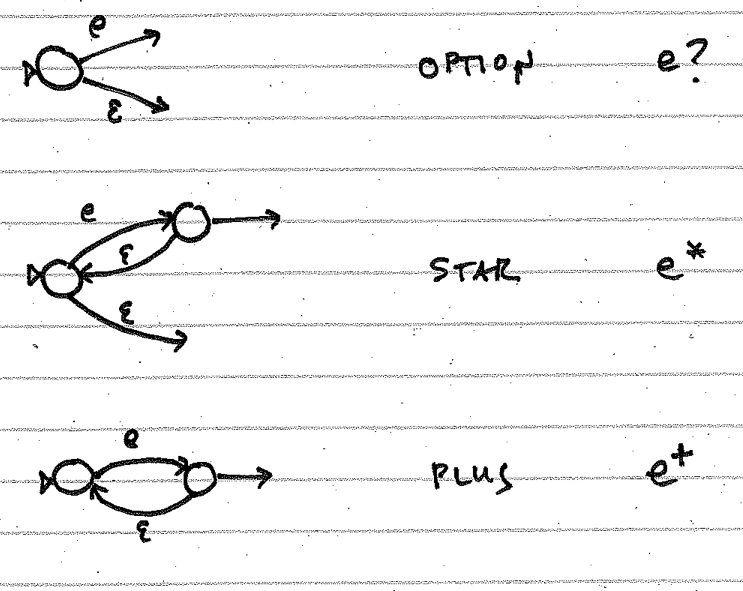 e
OPTION e?
ε
e
ε
STAR e*
ε
e
PLUS e+
ε